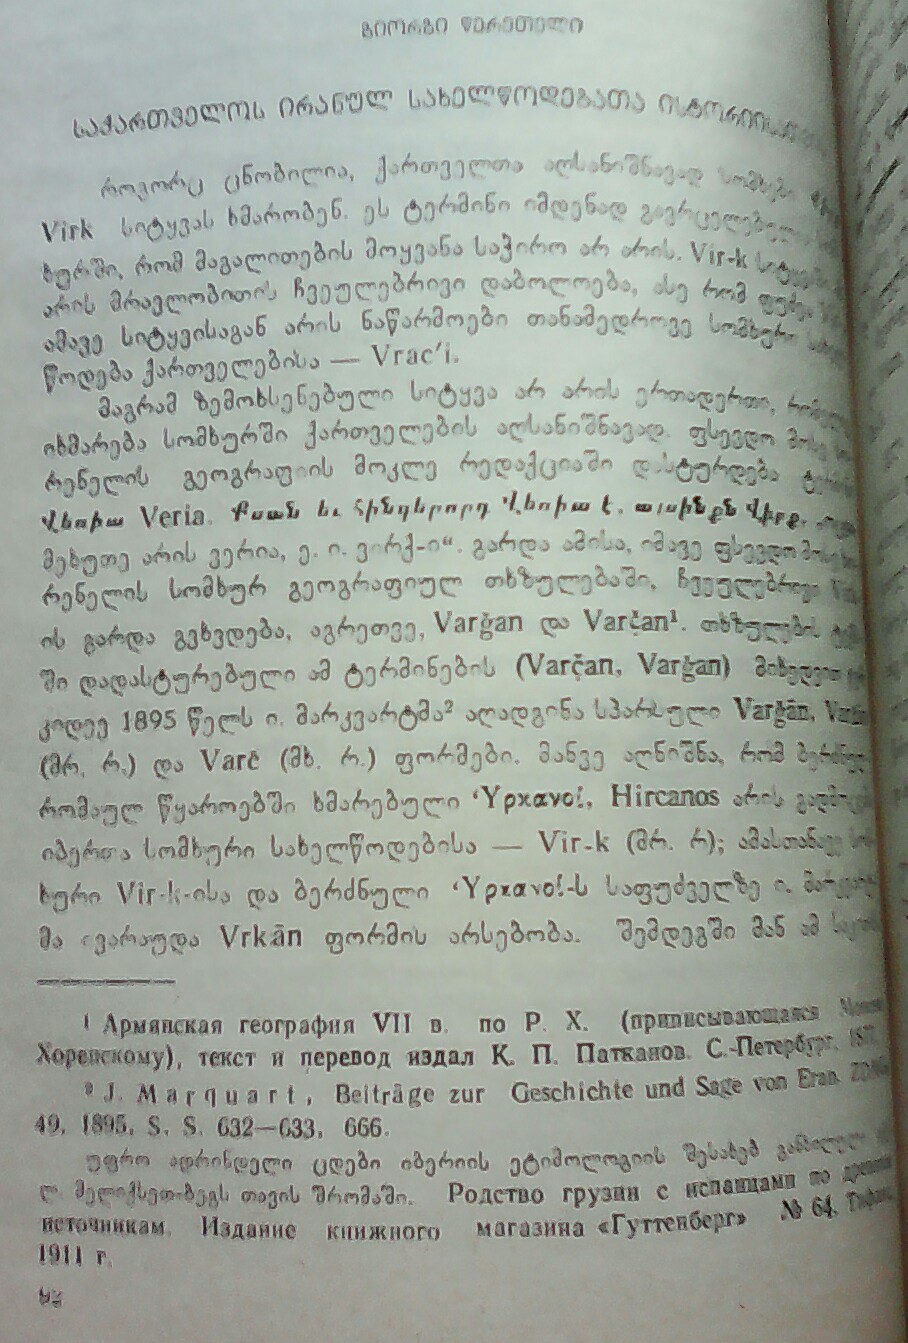 გიორგი წერეთელი
საქართველოს ირანულ სახელწოდებათა ისტორიისათვის
როგორც ცნობილია, ქართველთა აღსანიშნავად სომხები
Virk სიტყვას ხმარობენ. ეს ტერმინი იმდენად გავრცელებულია
ხურში, რომ მაგალითების მოყვანა საჭირო არ არის. Vir-k
არის მრავლობითის ჩვეულებრივი დაბოლოება, ისე რომ ფუძე
ამავე სიტყვისაგან არის ნაწარმოები თანამედროვე სომხური
წოდება ქართველებისა — Vrac′i.
მაგრამ ზემოხსენებული სიტყვა არ არის ერთადერთი,
იხმარება სომხურში ქართველების აღსანიშნავად. ფსევდო
რენელის გეოგრაფიის მოკლე რედაქციაში დასტურდება
Վերիա Veria. Քսան եւ հինգերորդ Վերիա է, այսինքն Վիրք.
მეხუთე არის ვერია, ე. ი. ვირქ-ი“. გარდა ამისა, იმავე ფსევდო
რენელის სომხურ გეოგრაფიულ თხზულებაში, ჩვეულებრივი
ის გარდა გვხვდება, აგრეთვე, Varǧan და Varčan¹. თხზულების
ში დადასტურებული ამ ტერმინების (Varčan, Varǧan) მიხედვით
კიდევ 1895 წელს ი. მარკვარტმა² აღადგინა სპარსული Varǧān,
(მრ. რ.) და Varč (მხ. რ.) ფორმები. მანვე აღნიშნა, რომ
რომაულ წყაროებში ხმარებული ‘Υρκανοί, Hircanos არის
იბერთა სომხური სახელწოდებისა — Vir-k (მრ. რ); ამასთანავე
ხური Vir-k-ისა და ბერძნული ‘Υρκανοί-ს საფუძველზე ი.
მა ივარაუდა Vrkān ფორმის არსებობა. შემდეგში მან ამ
¹ Армянская география VII в. по Р. Х. (приписывающаяся
Хоренскому), текст и перевод издал К. П. Патканов. С.-Петербург.
² J. Marquart, Beiträge zur Geschichte und Sage von Eran.
49, 1895, S. S. 632—633, 666.
უფრო ადრინდელი ცდები იბერიის ეტიმოლოგიის შესახებ
ლ. მელიქსეთ-ბეგს თავის შრომაში. Родство грузин с испанцами по
источникам. Издание книжного магазина «Гуттенберг» № 64.
1911 г.